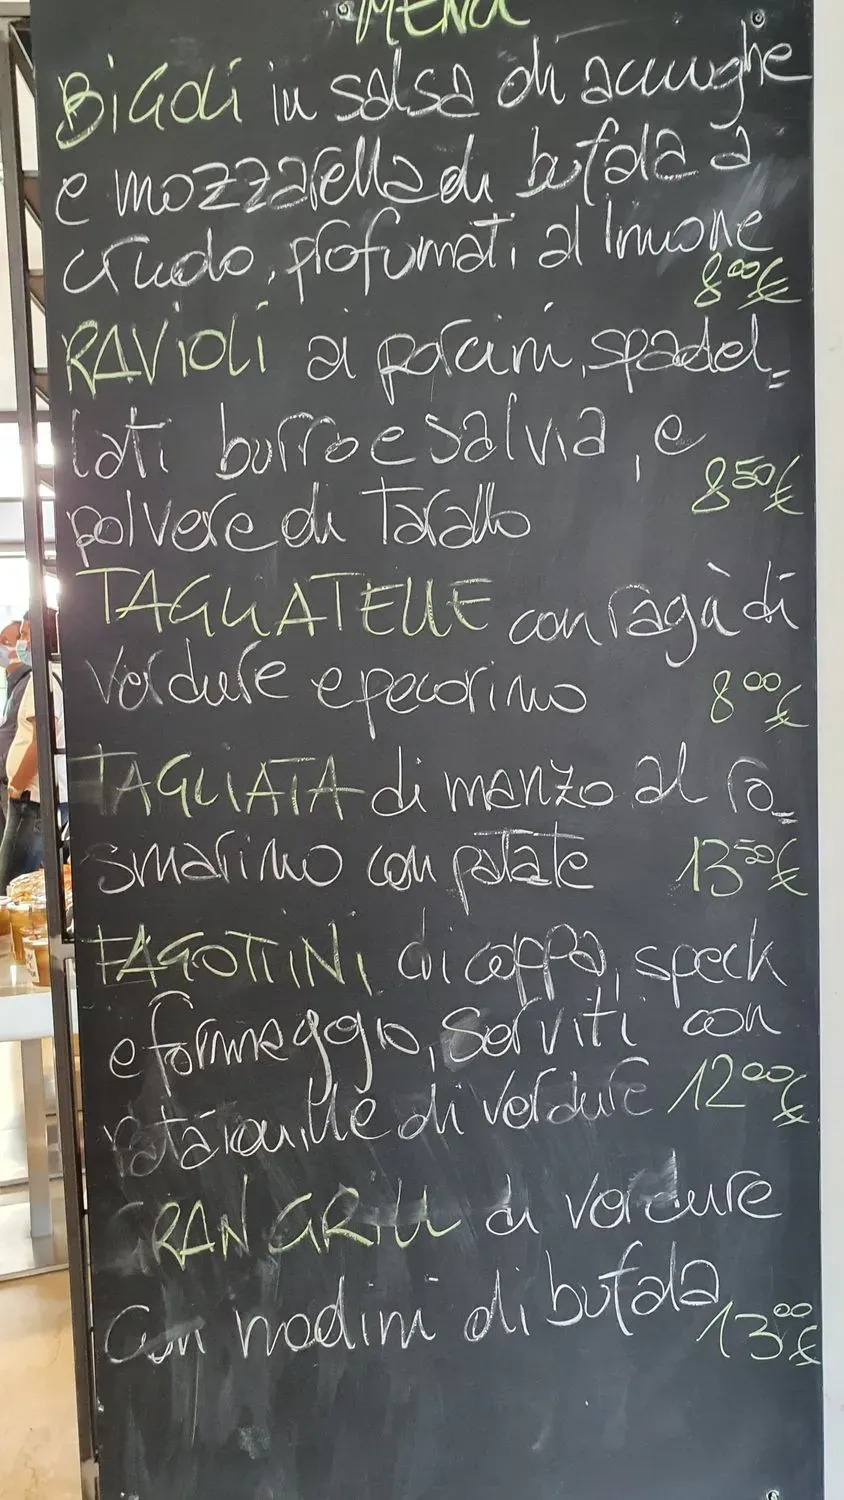 MENÙ
BIGOLI in salsa di acciughe
e mozzarella di bufala a
crudo, profumati al limone
8,00€
RAVIOLI ai porcini, spadel=
lati burro e salvia, e
8,50€
polvere di Tarallo
TAGLIATELLE con ragù di
verdure e pecorino 8,00€
TAGLIATA di manzo al ro_
smarino con patate 13,50€
FAGOTTINI di coppa, speck
e formaggio, serviti con
ratatouille di verdure 12,00€
GRAN GRILL di verdure
con nodini di bufala 13,00€